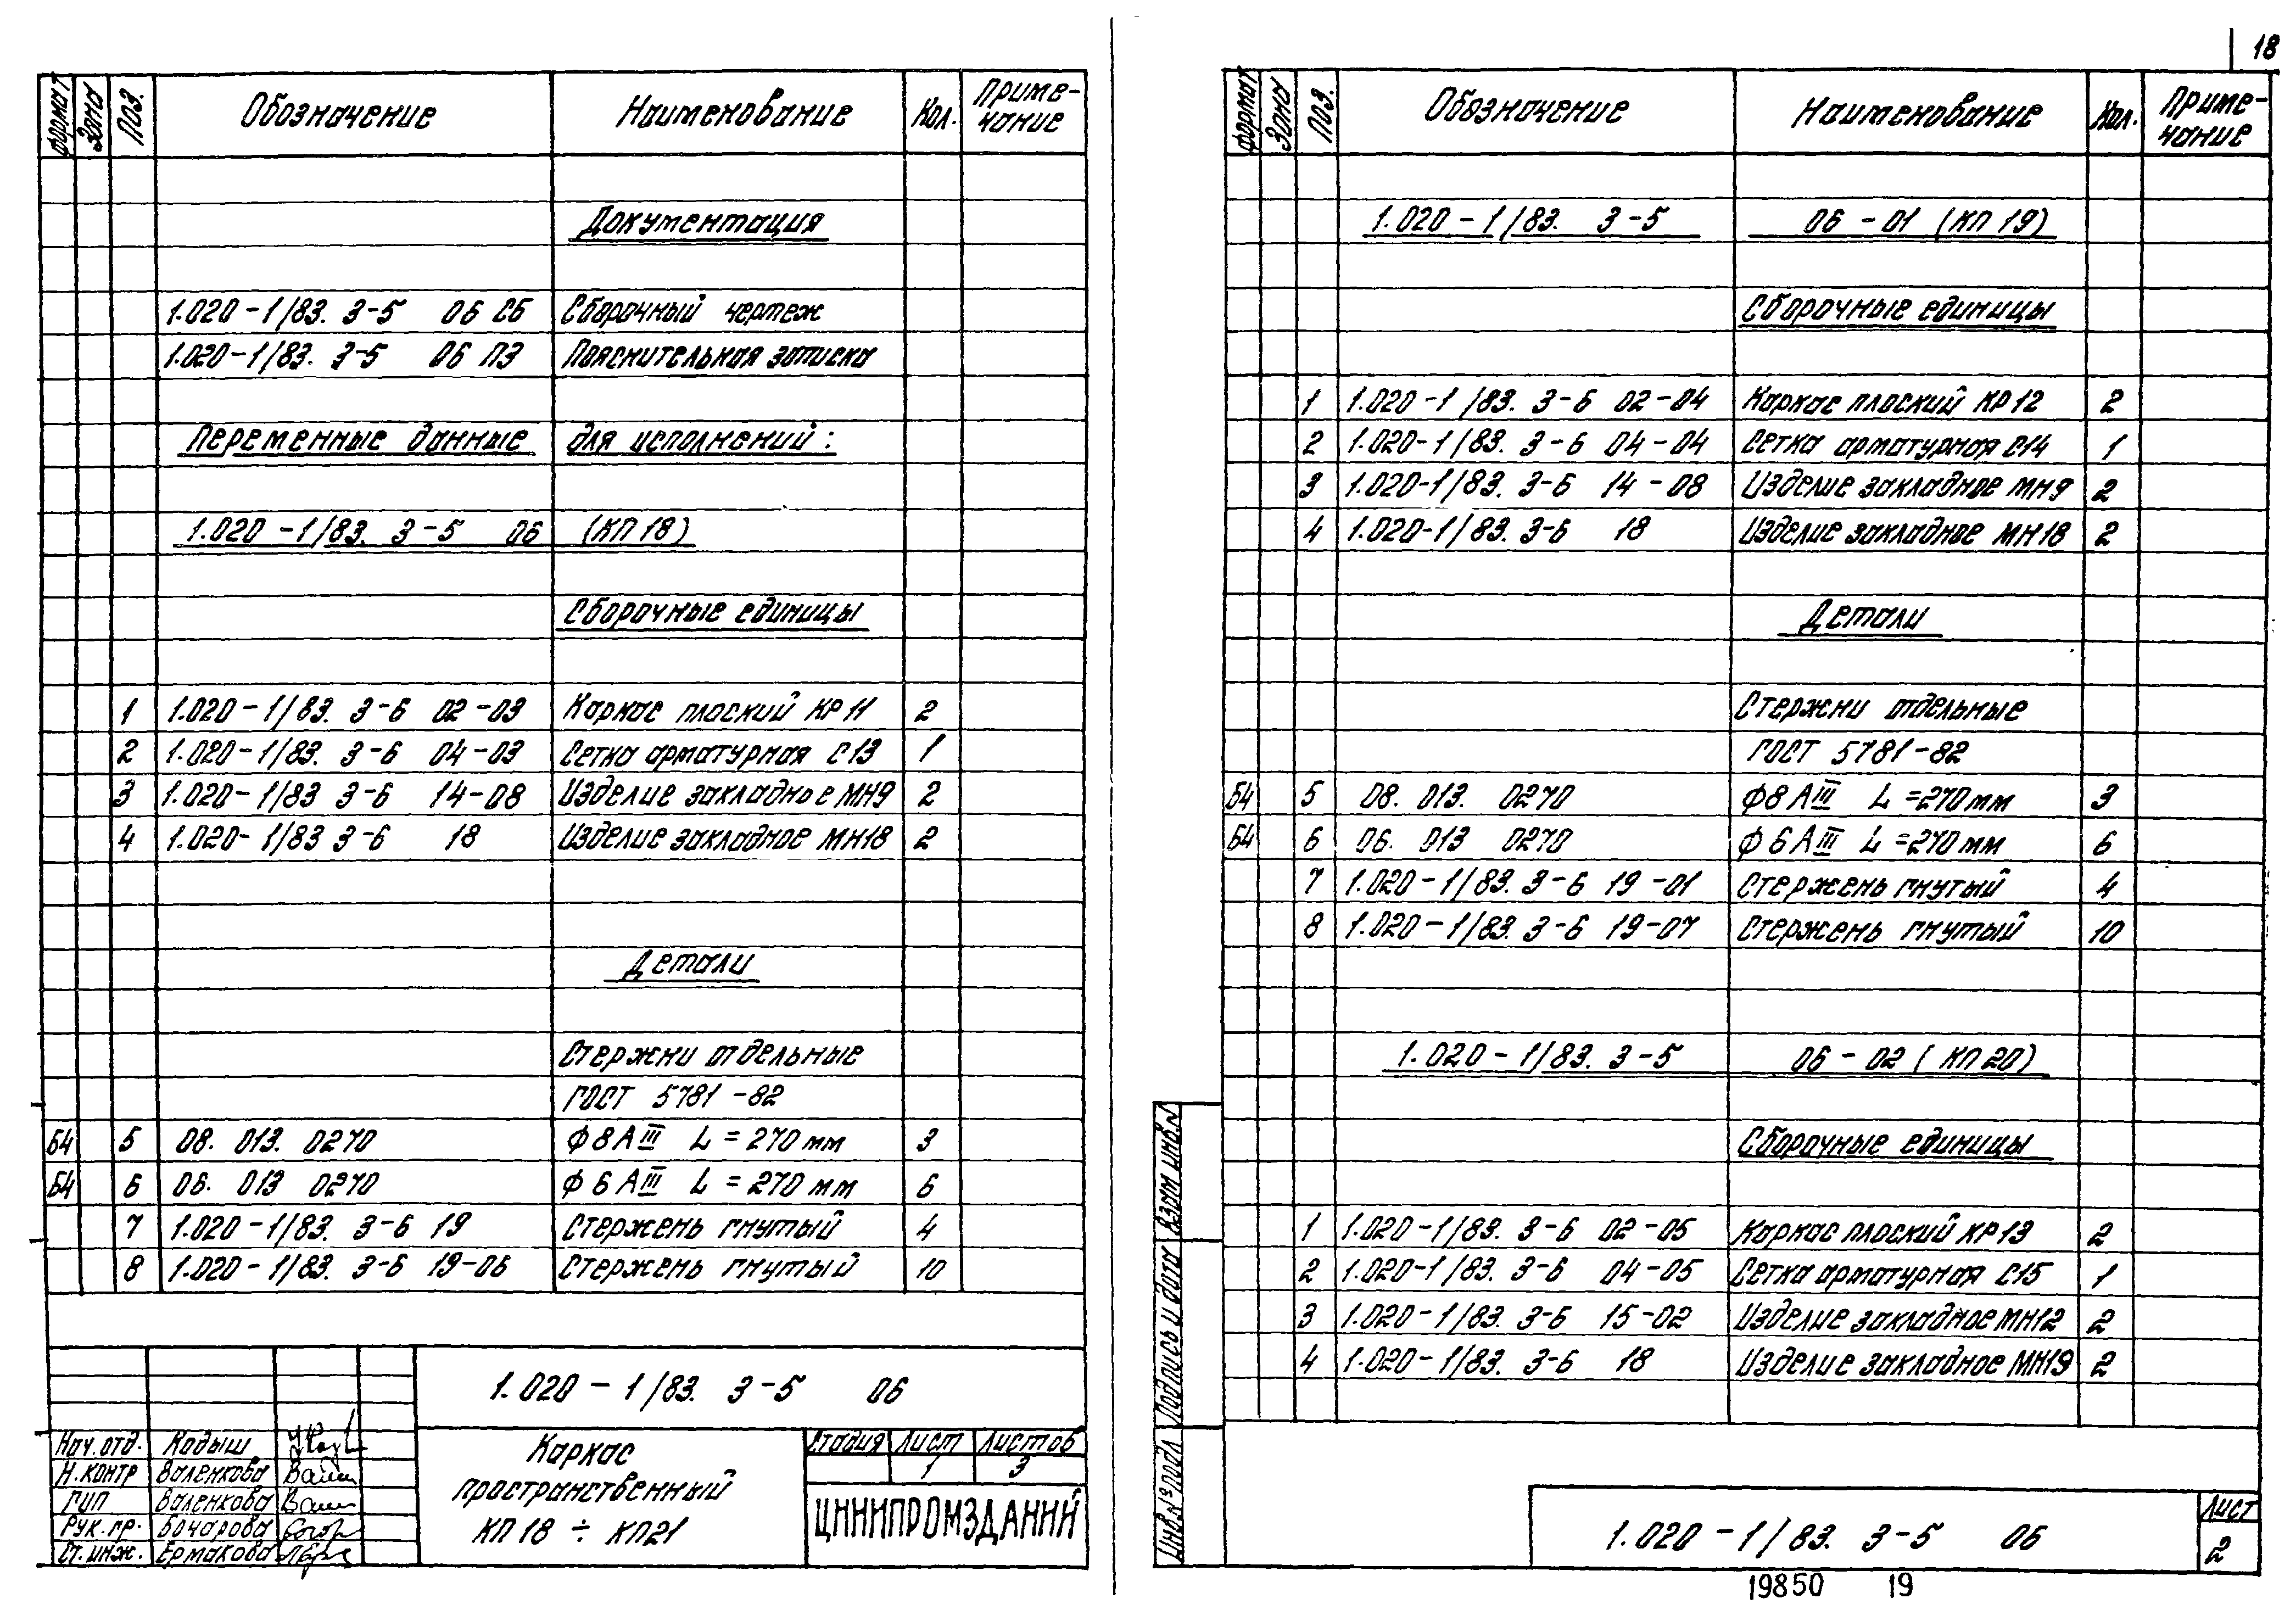 18
Формат Зона Поз. Обозначение Наименование Кол. Приме-чание
Документация
1.020-1/83. 3-5 06 СБ Сборочный чертеж
1.020-1/83. 3-5 06 ПЗ Пояснительная записка
Переменные данные для исполнений:
1.020-1/83. 3-5 06 (КП 18)
Сборочные единицы
1 1.020-1/83. 3-6 02-03 Каркас плоский КР 11 2
2 1.020-1/83. 3-6 04-03 Сетка арматурная С13 1
3 1.020-1/83 3-6 14-08 Изделие закладное МН9 2
4 1.020-1/83 3-6 18 Изделие закладное МН18 2
Детали
Стержни отдельные
ГОСТ 5781-82
Б4 5 08. 013. 0270 Ф8АIII L=270 мм 3
Б4 6 06. 013 0270 Ф6АIII L=270 мм 6
7 1.020-1/83. 3-6 19 Стержень гнутый 4
8 1.020-1/83. 3-6 19-06 Стержень гнутый 10
1.020-1/83. 3-5 06
Нач.отд. Кадыш
Н.контр Валенкова
ГИП Валенкова
Рук.гр. Бочарова
Ст.инж. Ермакова
Каркас
пространственный
КП 18 ÷ КП21
Стадия Лист Листов
1 3
ЦНИИПРОМЗДАНИЙ
Формат Зона Поз. Обозначение Наименование Кол. Приме-чание
1.020-1/83. 3-5 06-01 (КП 19)
Сборочные единицы
1 1.020-1/83. 3-6 02-04 Каркас плоский КР12 2
2 1.020-1/83. 3-6 04-04 Сетка арматурная С14 1
3 1.020-1/83. 3-6 14-08 Изделие закладное МН9 2
4 1.020-1/83. 3-6 18 Изделие закладное МН18 2
Детали
Стержни отдельные
ГОСТ 5781-82
Б4 5 08. 013. 0270 Ф8АIII L=270мм 3
Б4 6 06. 013 0270 Ф6АIII L=270мм 6
7 1.020-1/83. 3-6 19-01 Стержень гнутый 4
8 1.020-1/83. 3-6 19-07 Стержень гнутый 10
1.020-1/83. 3-5 06-02 (КП 20)
Сборочные единицы
1 1.020-1/83. 3-6 02-05 Каркас плоский КР13 2
2 1.020-1/83. 3-6 04-05 Сетка арматурная С15 1
3 1.020-1/83. 3-6 15-02 Изделие закладное МН12 2
4 1.020-1/83. 3-6 18 Изделие закладное МН19 2
Взам инв.№
Подпись и дата
Инв.№ подл
1.020-1/83. 3-5 06
Лист
2
19850 19